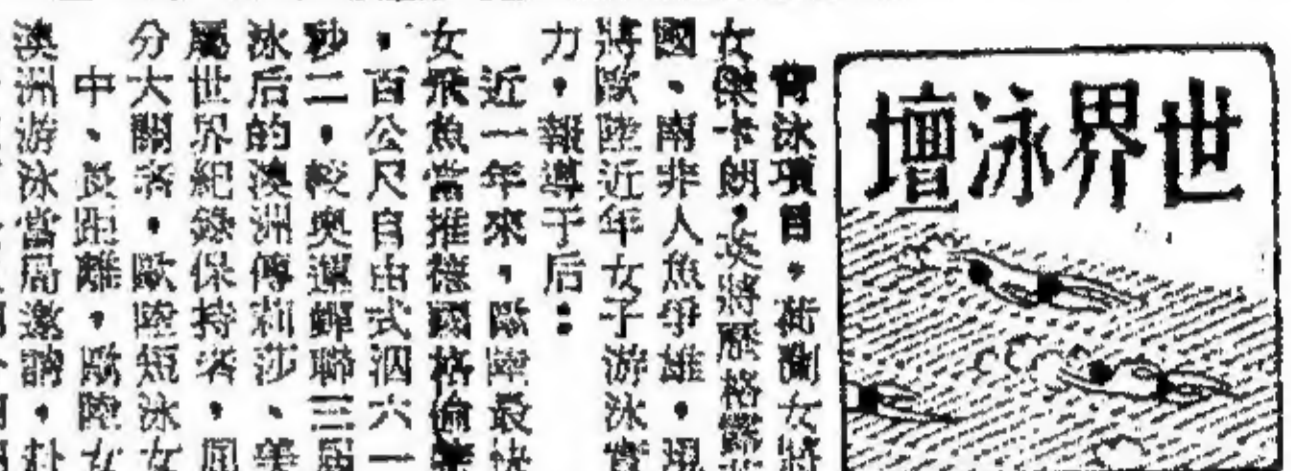 世界泳壇
背泳項目，荷蘭女將
女傑卡朗，英將羅格
國、南非人魚爭雄，現
將歐陸近年女子游泳實
力，報導于后：
近一年來，歐陸最快
女飛魚當推德國格倫
，百公尺自由式泅六一
秒二，較奧運蟬聯三屆
泳后的澳洲傅莉莎、美
屬世界紀錄保持者，
分大關者。歐陸短泳女
中、長距離，歐陸女
澳洲游泳當局邀請，赴